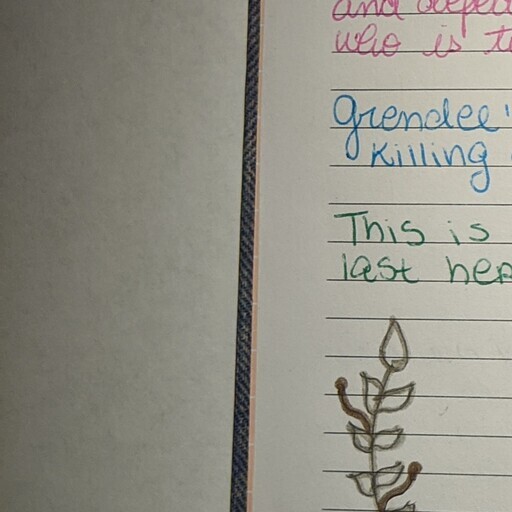 and
who is
Grendel'
Killing
This is
last